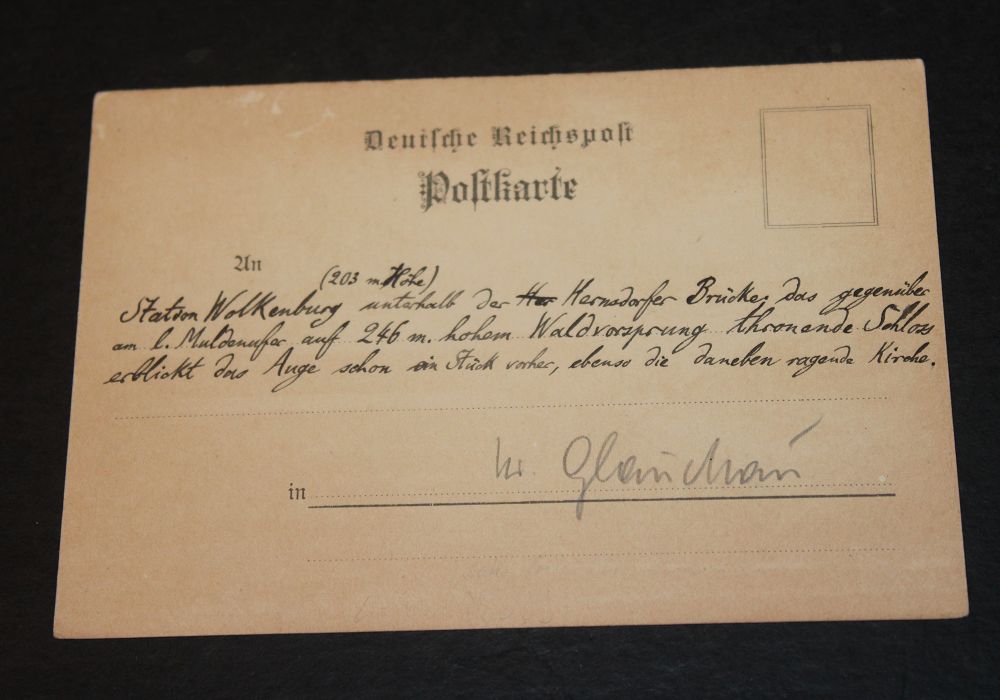 Deutsche Reichspost
Postkarte
An
(203 m Höhe)
Station Wolkenburg unterhalb der Her Hernsdorfer Brücke; das gegenüber
am l. Muldenufer auf 246 m. hohem Waldvorsprung thronende Schloss
erblickt das Auge schon ein Stück vorher, ebenso die daneben ragende Kirche.
in
Glauchau